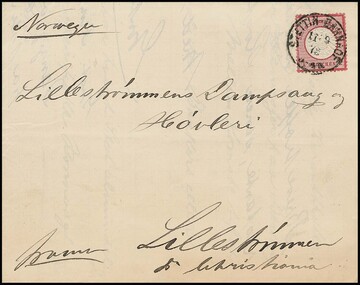 Norwegen
STETTIN-BAHNHOF
Lillestrømmens Dampsaug og
Hövleri
franco
Lilleströmmen
Christiania